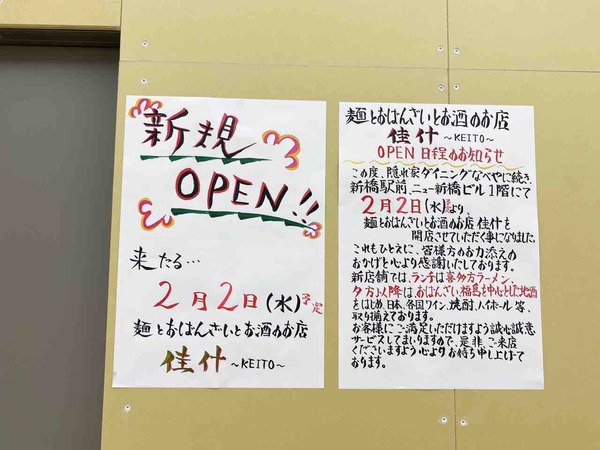 新規
OPEN!!
来たる…
2月2日(水)予定
麺とおばんざいとお酒のお店
佳什 ~KEITO~
麺とおばんざいとお酒のお店
佳什 ~KEITO~
OPEN日程のお知らせ
この度、隠れ家ダイニングなべやに続き、
新橋駅前、ニュー新橋ビル1階にて
2月2日(水)より、
麺とおばんざいとお酒のお店 佳什を
開店させていただく事になりました。
これもひとえに、皆様方のお力添えの
おかげと心より感謝いたしております。
新店舗では、ランチは喜多方ラーメン、
夕方以降は、おばんざい、福島を中心とした地酒
をはじめ、日本、各国ワイン、焼酎、ハイボール 等、
取り揃えております。
お客様にご満足いただけますよう誠心誠意
サービスしてまいりますので、是非、ご来店
くださいますよう心よりお待ち申し上げて
おります。